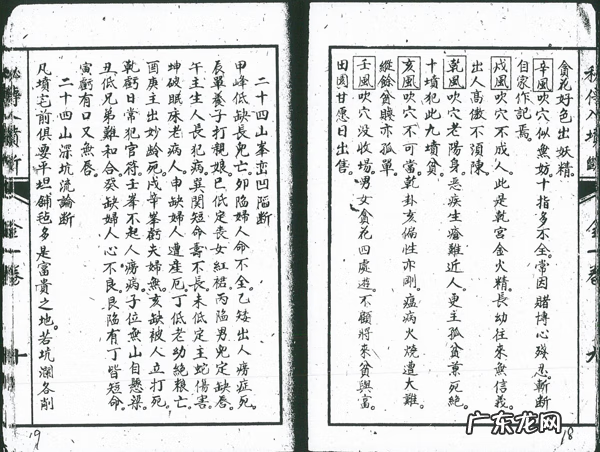 貪花好色出妖精
辛風吹穴似無妨十指多不全常因賭博心殘忍斬斷
自家作記焉
戍風吹穴不成人此是乾宮金火精長幼往來無信義
出人高傲不須陳
乾風吹穴老陽身惡疾生瘡難近人更主孤貧熏死絕
十墳犯此九墳貧
亥風吹穴不可當乾卦亥偏性亦剛瘟病火燒遭大難
縱餘貧賤亦孤單
壬風吹穴没收場男女貪花四處遊不顧將來貧與富
田園甘愿日出售
九
18
二十四山峯巒凹陷斷
甲峰低缺長兒亡卯陷婦人命不全乙矮出人癆症死
辰單養子打親娘巳低定丧女紅裙丙陷男兒定缺唇
午主生人長犯病巽関短命壽不長未低定主蛇傷害
坤破眠床老病人申缺婦人遭産厄丁低老幼絕粮亡
酉庚主出妙齡死戍辛峯虧夫婦無亥缺被人立打死
乾虧日常犯官符壬峯不起人癆病子位無山自懸梁
丑低兄弟難和合癸缺婦人心不良艮陷有丁皆短命
寅虧有口又無唇
二十四山深坑流論斷
凡墳宅前俱要平坦鋪毡多是富貴之地若坑瀾各削
金一卷
十
19
广东龙网